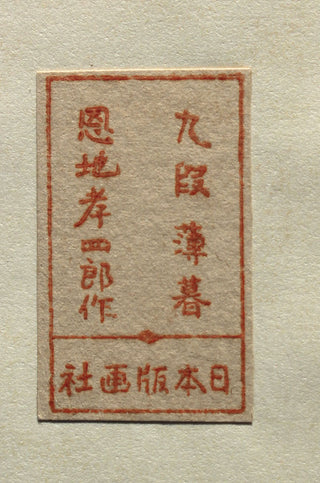 九段薄暮
恩地孝四郎作
日本版画社